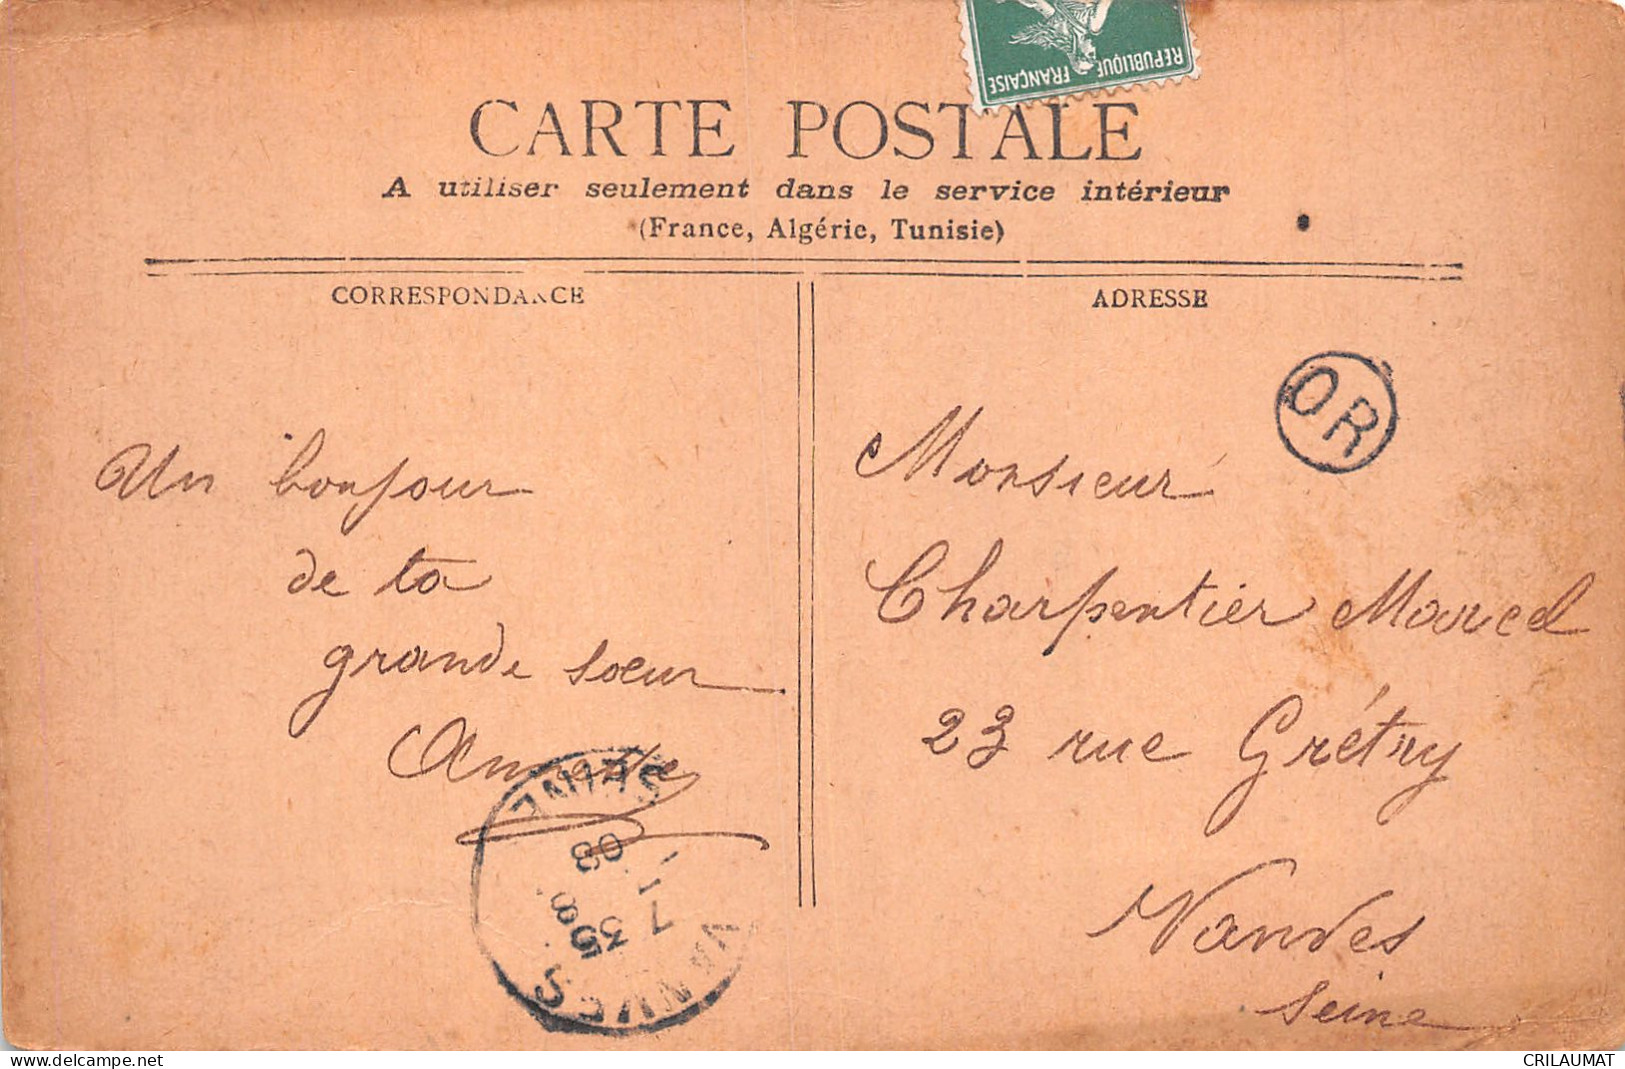 REPUBLIQUE FRANÇAISE
CARTE POSTALE
A utiliser seulement dans le service intérieur
(France, Algérie, Tunisie)
CORRESPONDANCE
ADRESSE
OR
Un bonjour
de ta
grande sœur
Monsieur
Charpentier Marcel
23 rue Grétry
Vanves
Seine
VANVES
SEINE
7 35
08
CRILAUMAT